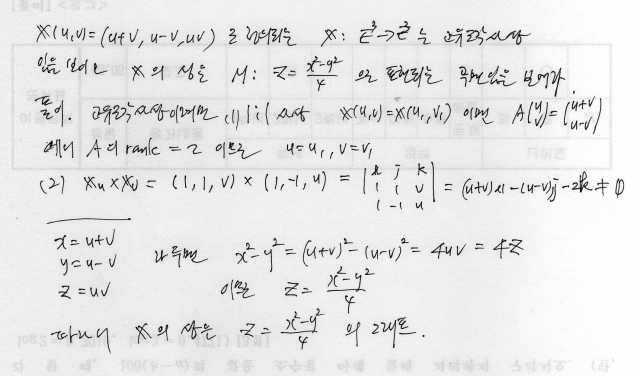 𝕏(u,v)=(u+v, u-v, uv) 로 정의되는 𝕏: E²→E³는 고유조각사상
임을 보이고 𝕏의 상은 M: z=\frac{x²-y²}{4} 으로 표현되는 곡면임을 보여라.
풀이. 고유조각사상이려면 (1) 1:1 사상 𝕏(u,v)=𝕏(u₁,v₁) 이면 A(u v)=(u+v u-v)
에서 A의 rank=2 이므로 u=u₁, v=v₁
(2) 𝕏u×𝕏v = (1,1,v)×(1,-1,u) = |i j k 1 1 v 1 -1 u| = (u+v)i-(u-v)j-2k≠0
x=u+v
y=u-v
z=uv
라 두면 x²-y²=(u+v)²-(u-v)²=4uv=4z
이므로 z=\frac{x²-y²}{4}
따라서 𝕏의 상은 z=\frac{x²-y²}{4} 의 그래프.